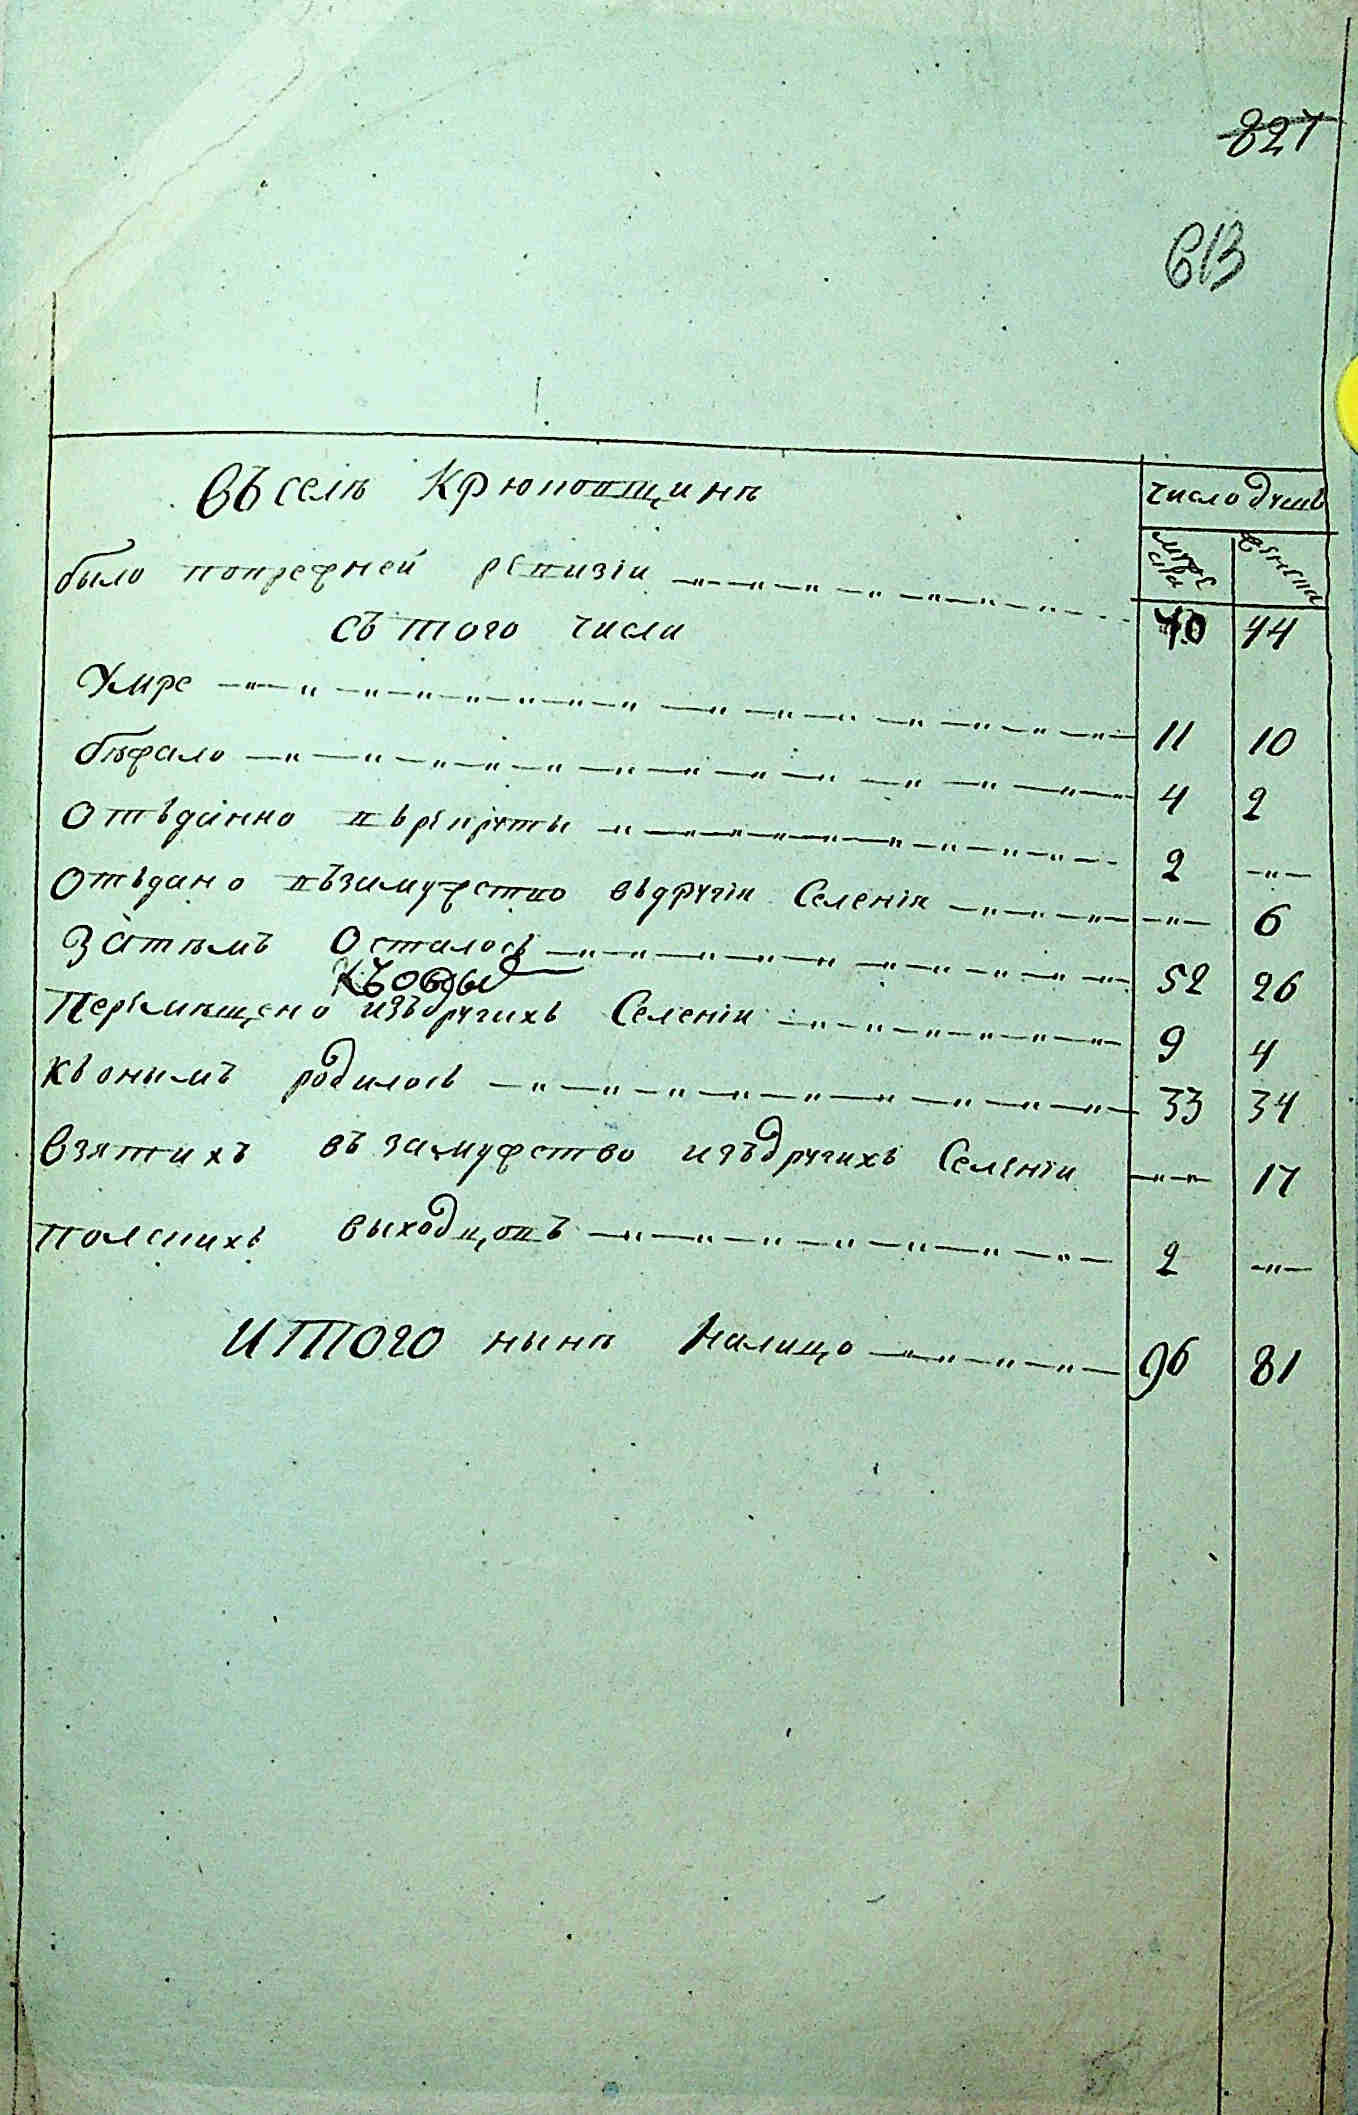 827
613
Въ селѣ Крюковщинѣ
число душъ
мужеска
женска
было попрежней ревизіи 70 44
съ того числа
Умре 11 10
бѣжало 4 2
Отъданно въ рекруты 2
Отъдано въ замужство въ другіи Селеніи 6
Затѣмъ Осталось 52 26
Къ онымъ
Перемѣщено изъ другихъ Селеніи 9 4
Къ онымъ родилось 33 34
Взятихъ въ замужство изъ другихъ Селеніи 17
полскихъ выходцовъ 2
ИТОГО нынѣ налицо 96 81